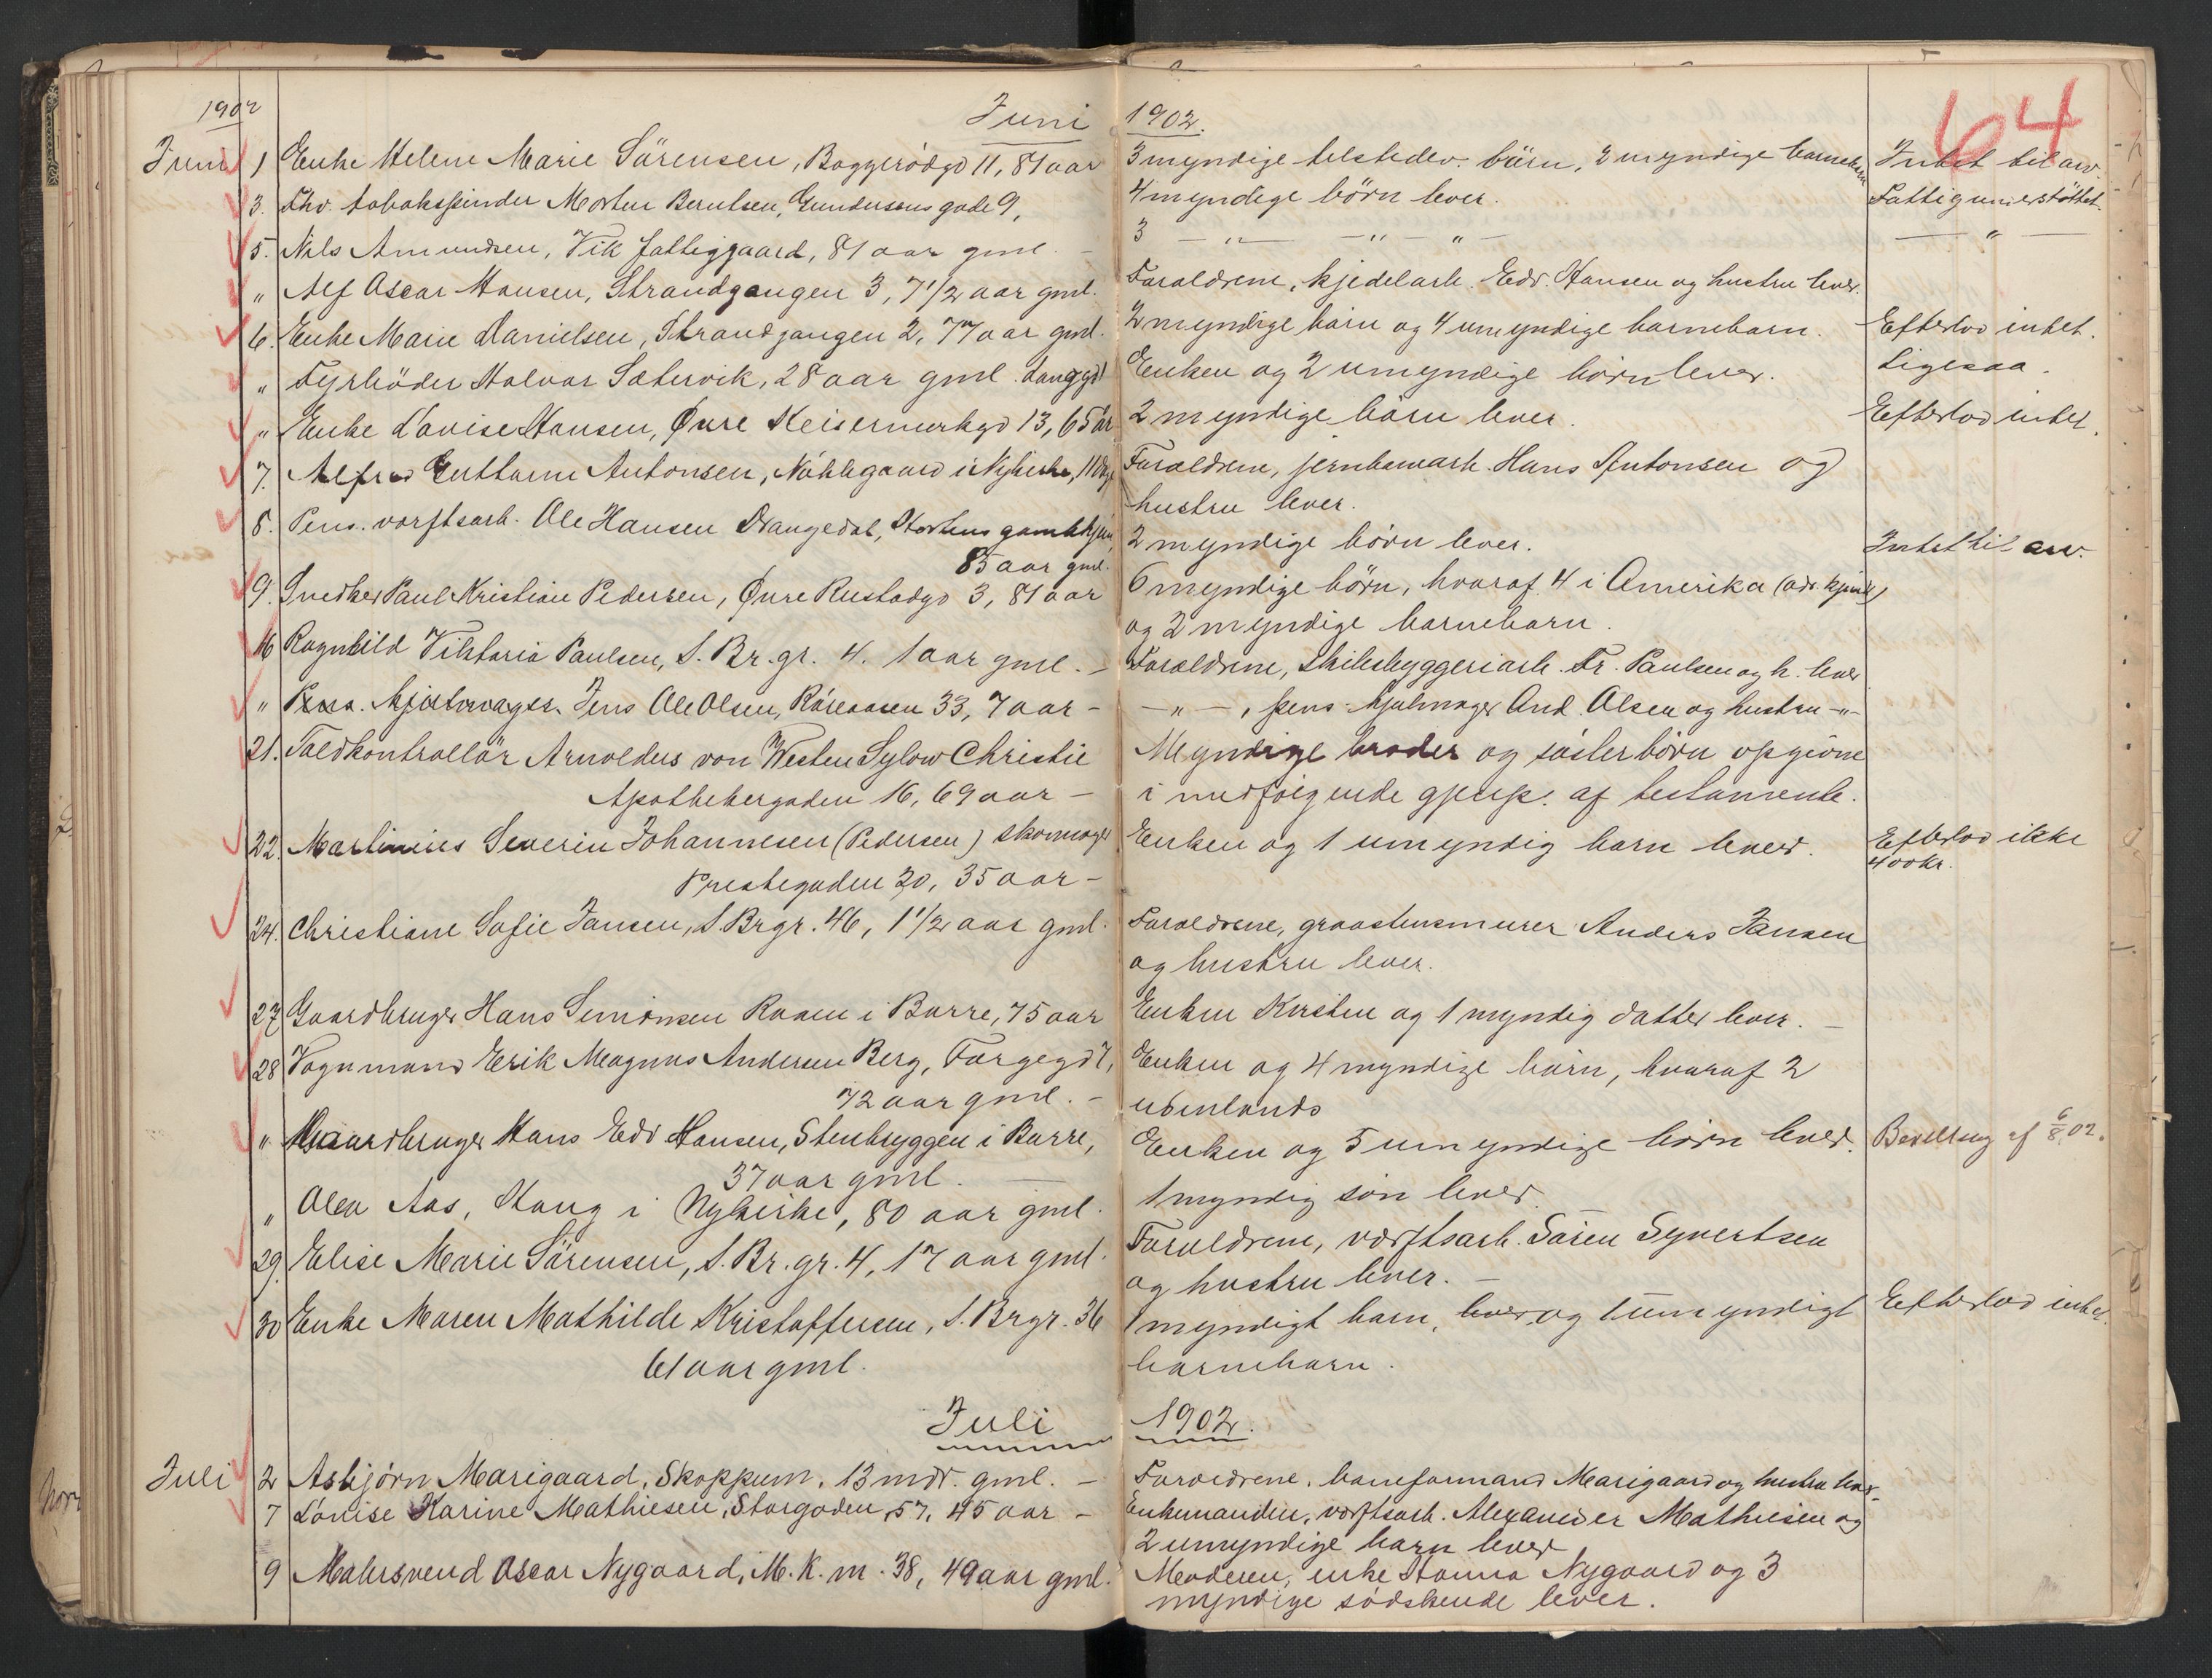 64
1902 Juni 1902.
Juni 1 Enke Helene Marie Sörensen, Baggerödgd 11, 81 aar 3 myndige tilstedev. börn, 2 myndige barnebarn Intet til arv.
3. Fhv. tobakspinder Morten Berntsen, Gundersens gade 9, 4 myndige börn lever. Fattigunderstöttet.
5. Nils Amundsen, Vik fattiggaard, 81 aar gml. - 3 — " — — " — " — — " —
" Alf Oscar Hansen, Strandgangen 3, 7 1/2 aar gml. Foraldrene, kjedelarb. Edv. Hansen og hustru lever.
6. Enke Marie Danielsen, Strandgangen 2, 77 aar gml. 2 myndige börn og 4 umyndige barnebarn. Efterlod intet.
" Fyrböder Halvor Sætervik, 28 aar gml. Langgd Enken og 2 umyndige börn lever. Ligesaa.
" Enke Lovise Hansen, Övre Keisemerkgd 13, 65 år 2 myndige börn lever. Efterlod intet.
7. Alfred Guttorm Antonsen, i Nykirke, Foraldrene, jernbanearb. Hans Antonsen og
hustru lever.
8. Pens. verftsarb. Ole Hansen Drangedal, Hortens gamlehjem, 2 myndige börn lever. Intet til arv.
85 aar gml.
9. Snedker Paul Kristian Pedersen, Övre Rustadgd 3, 81 aar 6 myndige börn, hvoraf 4 i Amerika (adr. kjendt)
og 2 myndige barnebarn.
16 Ragnhild Viktoria Paulsen, S. Br. gr. 4. 1 aar gml. - Foraldrene, skibsbyggeriarb. Fr. Paulsen og h. lever
" Pens. hjulmager. Jens Ole Olsen, Röreaasen 33, 7 aar - — " — , pens. hjulmager And. Olsen og hustru -"-
21. Toldkontrollör Arnoldus von Westen Sylow Christie Myndige broder og sösterbörn opgivne
Apothekergaden 16, 69 aar — i medfölgende gjenp. af testamente.
22. Martinius Severin Johannesen (Pedersen) skomager Enken og 1 umyndig barn lever. Efterlod ikke
400 kr.
Prestegaden 20, 35 aar -
24. Christiane Sofie Jansen, S. Brgr. 46, 1 1/2 aar gml. Foraldrene, graastensmurer Anders Jansen
og hustru lever.
27 Gaardbruger Hans Simonsen Raaen i Borre, 75 aar Enken Kirsten og 1 myndig datter lever. —
28 Vognmand Erik Magnus Andersen Berg, Fargegd 7, Enken og 4 myndige börn, hvoraf 2
72 aar gml. - udenlands
" Gaardbruger Hans Edv Hansen, Stenbryggen i Borre, Enken og 5 umyndige börn lever. Bevilling af 6/8 02.
37 aar gml. —
" Olea Aas, Haug i Nykirke, 80 aar gml. 1 myndig sön lever.
29. Elise Marie Sörensen, S. Br. gr. 4, 17 aar gml. Foraldrene, verftsarb. Sören Syvertsen
og hustru lever. —
30 Enke Maren Mathilde Kristoffersen, S. Brgr. 36 1 myndigt barn, lever, og 1 umyndigt Efterlod intet.
61 aar gml. barnebarn.
Juli 1902.
Juli 2 Asbjörn Marigaard, Skoppum, 13 mdr. gml. - Foraldrene, baneformand Marigaard og hustru lever.
7 Lovise Karine Mathiesen, Storgaden 57, 45 aar - Enkemanden, verftsarb. Alexander Mathiesen og
2 umyndige barn lever
9 Malersvend Oscar Nygaard, M. K. m. 38, 49 aar gml. Moderen, enke Hanna Nygaard og 3
myndige södskende lever.